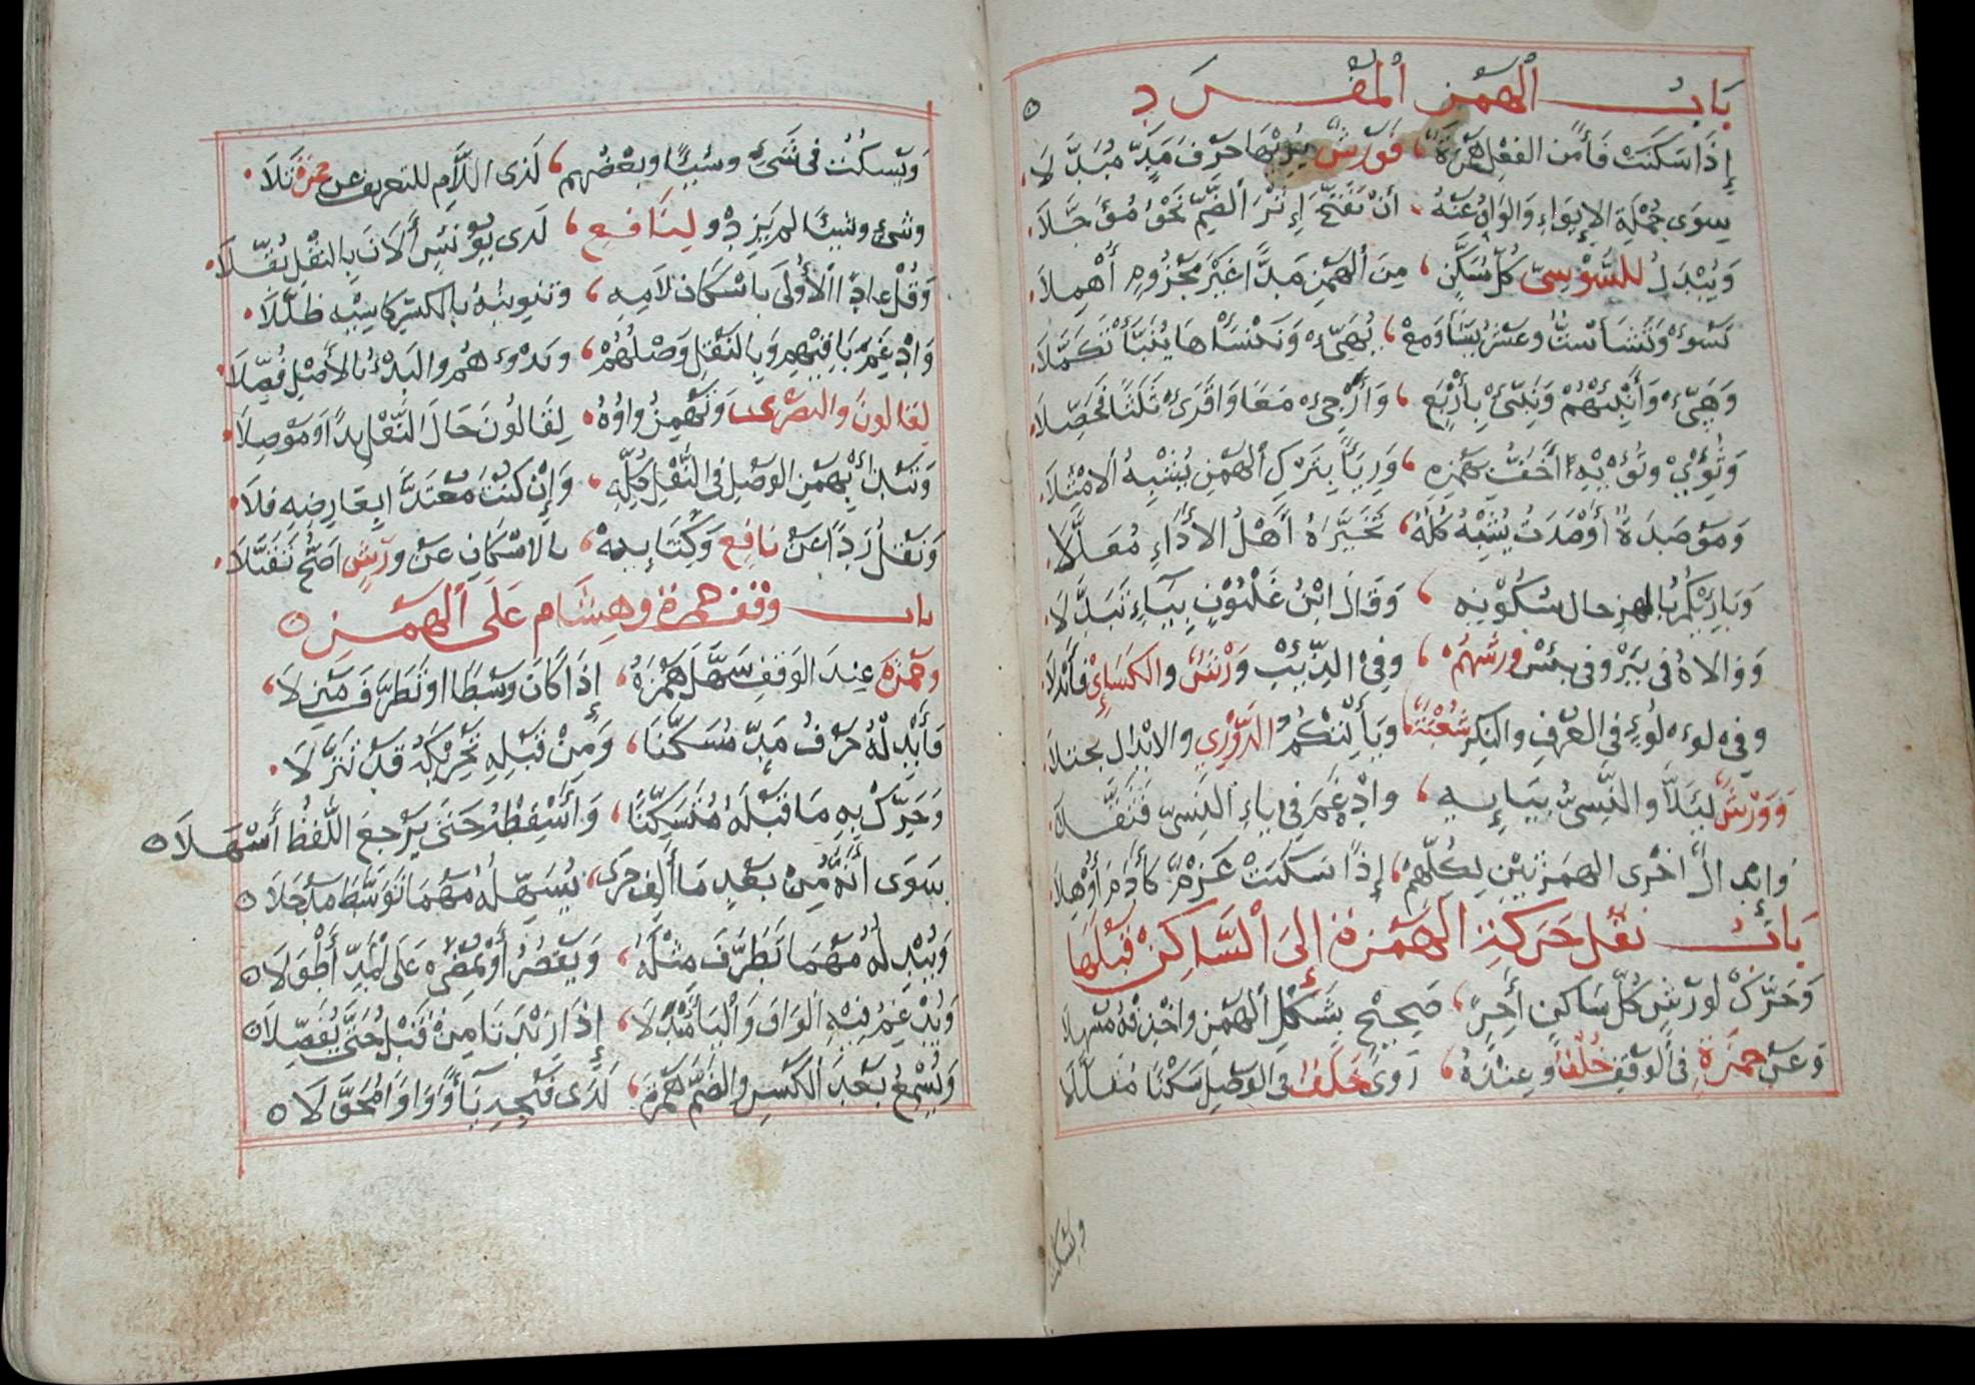 بَابُ الْهَمْزِ الْمُفْرَدِ
إِذَا سَكَنَتْ فَاءً مِنَ الفِعْلِ هَمْزَةٌ ، فَوَرْشٌ يُرِيْهَا حَرْفَ مَدٍّ مُبَدَّلَا
سِوَى جُمْلَةِ الإِيوَاءِ وَالوَاوُ عَنْهُ ، أَنْ تَفَتَّحَ إِثْرَ الضَّمِّ نَحْوُ مُؤَجَّلَا
وَيُبْدَلُ لِلسُّوسِيِّ كُلُّ مُسَكَّنٍ ، مِنَ الْهَمْزِ مَدًّا غَيْرَ مَجْزُومٍ أُهْمِلَا
تَسُؤْ وَنَشَأْ سِتٌّ وَعَشْرُ يَشَأْ وَمَعْ ، يُهَيِّئْ وَنَنْسَأْهَا يُنَبَّأْ تَكَمَّلَا
وَهَيِّئْ وَأَنْبِئْهُمْ وَنَبِّئْ بِأَرْبَعٍ ، وَأَرْجِئْ مَعًا وَاقْرَأْ ثَلَاثًا فَحَصِّلَا
وَتُؤْوِيْ وَتُؤْوِيْهِ أَخَفُّ بِهَمْزِهِ ، وَرِيْيًا بِتَرْكِ الْهَمْزِ يُشْبِهُ الامْتِلَا
وَمُؤْصَدَةٌ أَوْصَدتُ يُشْبِهُ كُلُّهُ ، تَخَيَّرَهُ أَهْلُ الأَدَاءِ مُعَلَّلَا
وَبَارِئِكُمْ بِالهمزِ حال سُكُوْنِهِ ، وَقَالَ ابْنُ غَلْبُوْنٍ بِيَاءٍ تَبَدَّلَا
وَوَالَاهُ فى بِئْرٍ وفى بِئْسَ وَرْشُهُمْ ، وفِي الذِّئْبِ وَرْشٌ والكِسَائِي فَأَبْدَلَا
وفي لؤلؤٍ في العُرْفِ والنكرِ شُعْبَةٌ ، وَيَأْلِتْكُمُ الدُّوْرِي والابْدال يجتلَا
وَوَرْشٌ لِئَلَّا والنَّسِيءُ بِيَائِهِ ، وادْغَمَ فِي يَاءِ النَّسِيِّ فَثَقَّلَا
وَإِبْدَالُ اخْرَى الهمزَتَيْنِ لِكُلِّهِمْ ، إِذَا سَكَنَتْ عَزْمٌ كَآدَمَ أُوْهِلَا
بَابُ نَقْلِ حَرَكَةِ الْهَمْزَةِ إِلَى الْسَّاكِنِ قَبْلَهَا
وَحَرِّكْ لِوَرْشٍ كُلَّ سَاكِنٍ آخِرٍ ، صَحِيحٍ بِشَكْلِ الْهَمْزِ وَاحْذِفْهُ مُسْهِلَا
وَعَنْ حَمْزَةٍ فى الْوَقْفِ خُلْفٌ وَعِنْدَهُ ، رَوَى خَلَفٌ فى الْوَصْلِ سَكْتًا مُقَلَّلَا
ويسكت
وَيَسْكُتُ فى شَيْءٍ وشَيْئًا وبَعْضُهُم ، لَدَى اللَّامِ للتعريفِ عن حمزةٍ تَلَا
وشَيْءٍ وشَيْئًا لم يَزِدْ و لِنَافِعٍ ، لَدى يُوْنُسٍ أَلْآنَ بِالنَّقْلِ نُقِّلَا
وَقُلْ عادًا الْأُوْلَى بِاسْكَانِ لَامِهِ ، وَتَنْوِينُهُ بِالكسْرِ كَاسِيْهِ ظَلَّلَا
وَادْغَمَ بَاقِيْهِمْ وَبِالنَّقْلِ وَصْلُهُمْ ، وَبَدْؤُهُمُ والبَدْءُ بِالأَصْلِ فُضِّلَا
لِقَالُونَ والبَصْرِى وَتُهْمَزُ وَاوُهُ ، لِقَالُونَ حَالَ النَّقْلِ بَدْأً وَمَوْصِلَا
وَتَبْدَأُ بِهَمْزِ الوَصْلِ فِى النَّقْلِ كُلِّهِ ، وَإِنْ كُنْتَ مُعْتَدًّا بِعَارِضِهِ فَلَا
وَنَقْلُ رِدًا عَنْ نَافِعٍ وَكِتَابِيَهْ ، بالاسْكَانِ عَنْ وَرْشٍ أَصَحُّ تَقَبُّلَا
باب وقف حمزة وهِشَام عَلَى الْهَمْزِ
وحَمْزَةُ عِنْدَ الوَقْفِ سَهَّلَ هَمْزَهُ ، إِذَا كَانَ وَسْطًا اوْ تَطَرَّفَ مَنْزِلَا
فَأَبْدِلْهُ حَرْفَ مَدٍّ مُسَكِّنًا ، وَمِنْ قَبْلِهِ تَحْرِيْكُهُ قَدْ تَنَزَّلَا
وَحَرِّكْ بِهِ مَا قَبْلَهُ مُتَسَكِّنًا ، وَأَسْقِطْهُ حَتَّى يَرْجِعَ اللَّفْظُ أَسْهَلَا
سِوَى أَنَّهُ مِنْ بَعْدِ مَا أَلِفٍ جَرَى ، يُسَهِّلُهُ مَهْمَا تَوَسَّطَ مَدْخَلَا
وَيُبْدِلُهُ مَهْمَا تَطَرَّفَ مِثْلَهُ ، وَيَقْصُرُ أَوْ يَمْضِي عَلَى الْمَدِّ أَطْوَلَا
وَيُدْغِمُ فِيْهِ الْوَاوَ وَالْيَا مُبْدِلَا ، إِذَا زِيْدَتَا مِنْ قَبْلُ حَتَّى يُفَصِّلَا
وَيُسْمِعُ بَعْدَ الْكَسْرِ والضَّمِّ هَمْزَهُ ، لَدَى فَتْحِهِ يَاءً وَوَاوًا مُحَوَّلَا